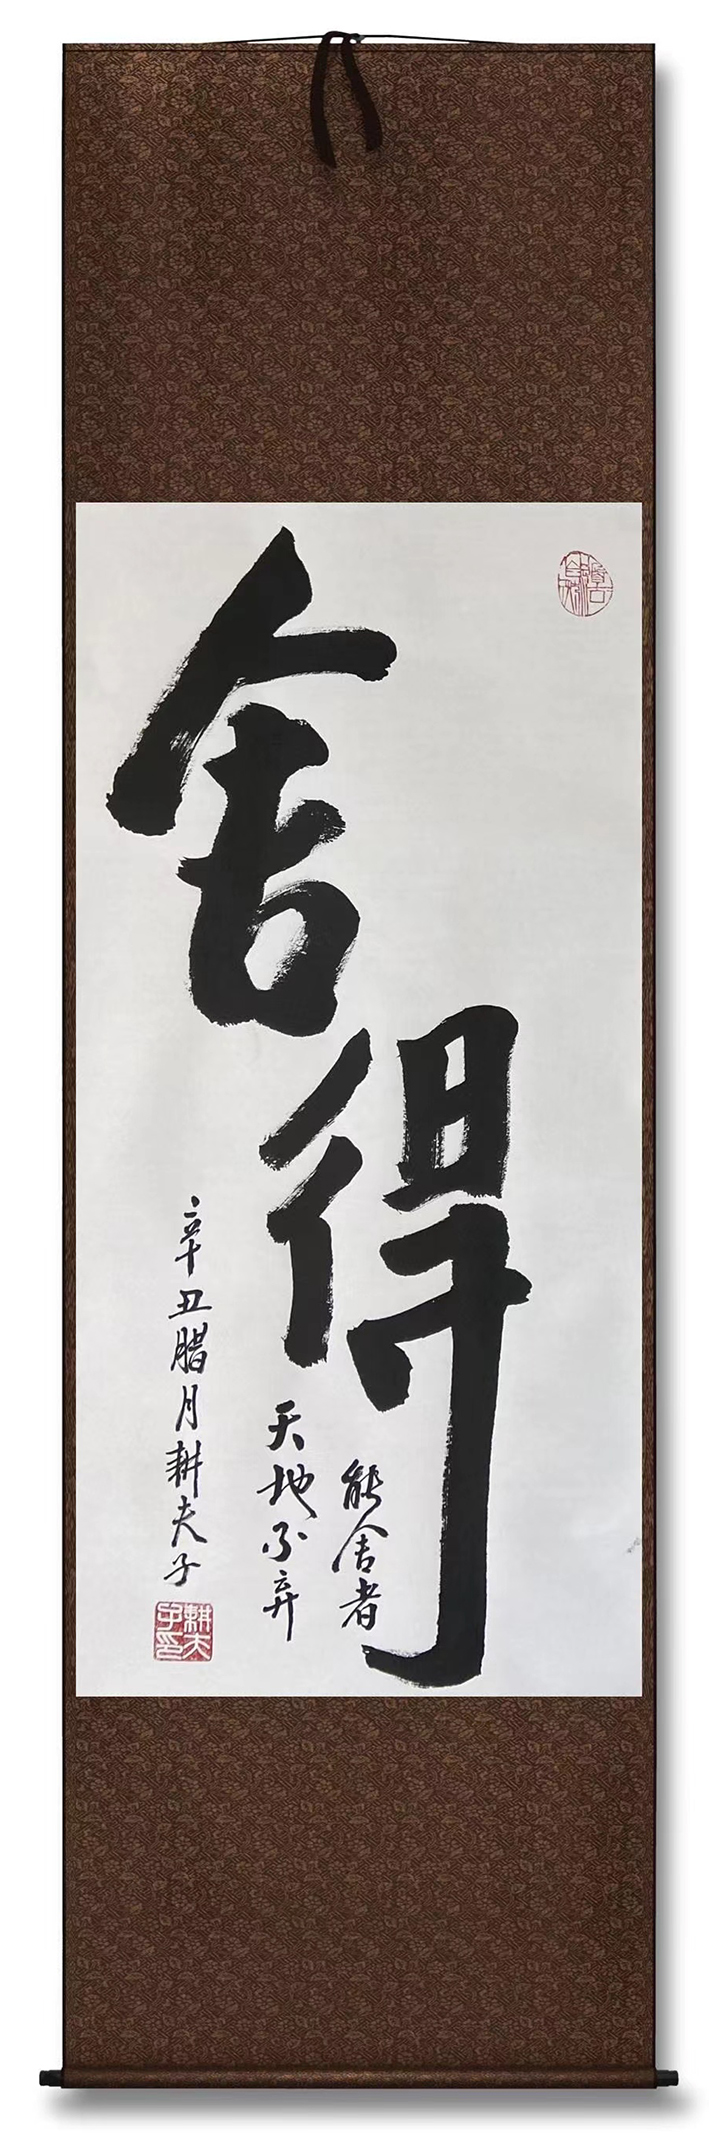 舍得
能舍者
天地不弃
辛丑腊月耕夫子
耕夫
子印